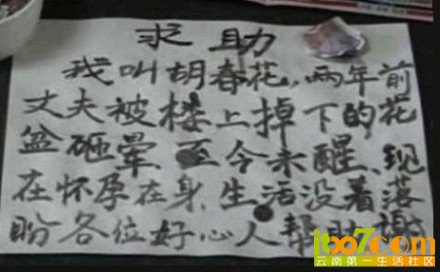 求助
我叫胡春花,两年前
丈夫被楼上掉下的花
盆砸晕至今未醒、现
在怀孕在身,生活没着落
盼各位好心人帮助谢
itbo7.com
云南第一生活社区